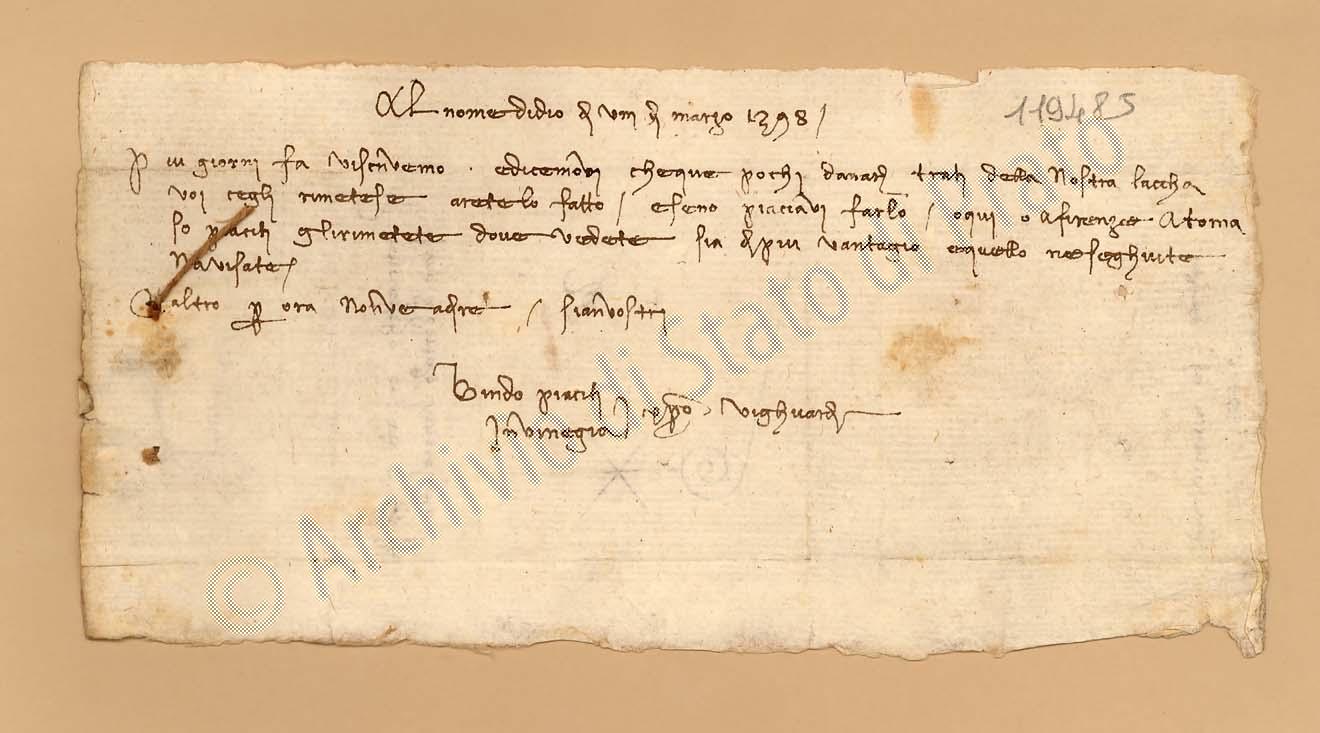 Al nome di dio dì viiii di marzo 1398 /
119485
P iii giorni fa viscrivemo . e dicemovi che que pochi danari trati della nostra laccha
voi cegli rimetese aretelo fatto / e se no piaciavi farlo / o qui o a firenze a toma
so piaciti gli rimetete dove vedete sia di più vantagio e quello ne seghuite
navisate /
Daltro p ora nonve a dire / sian vostri
Bindo piaciti
in vinegia
© Archivio di Stato di Prato